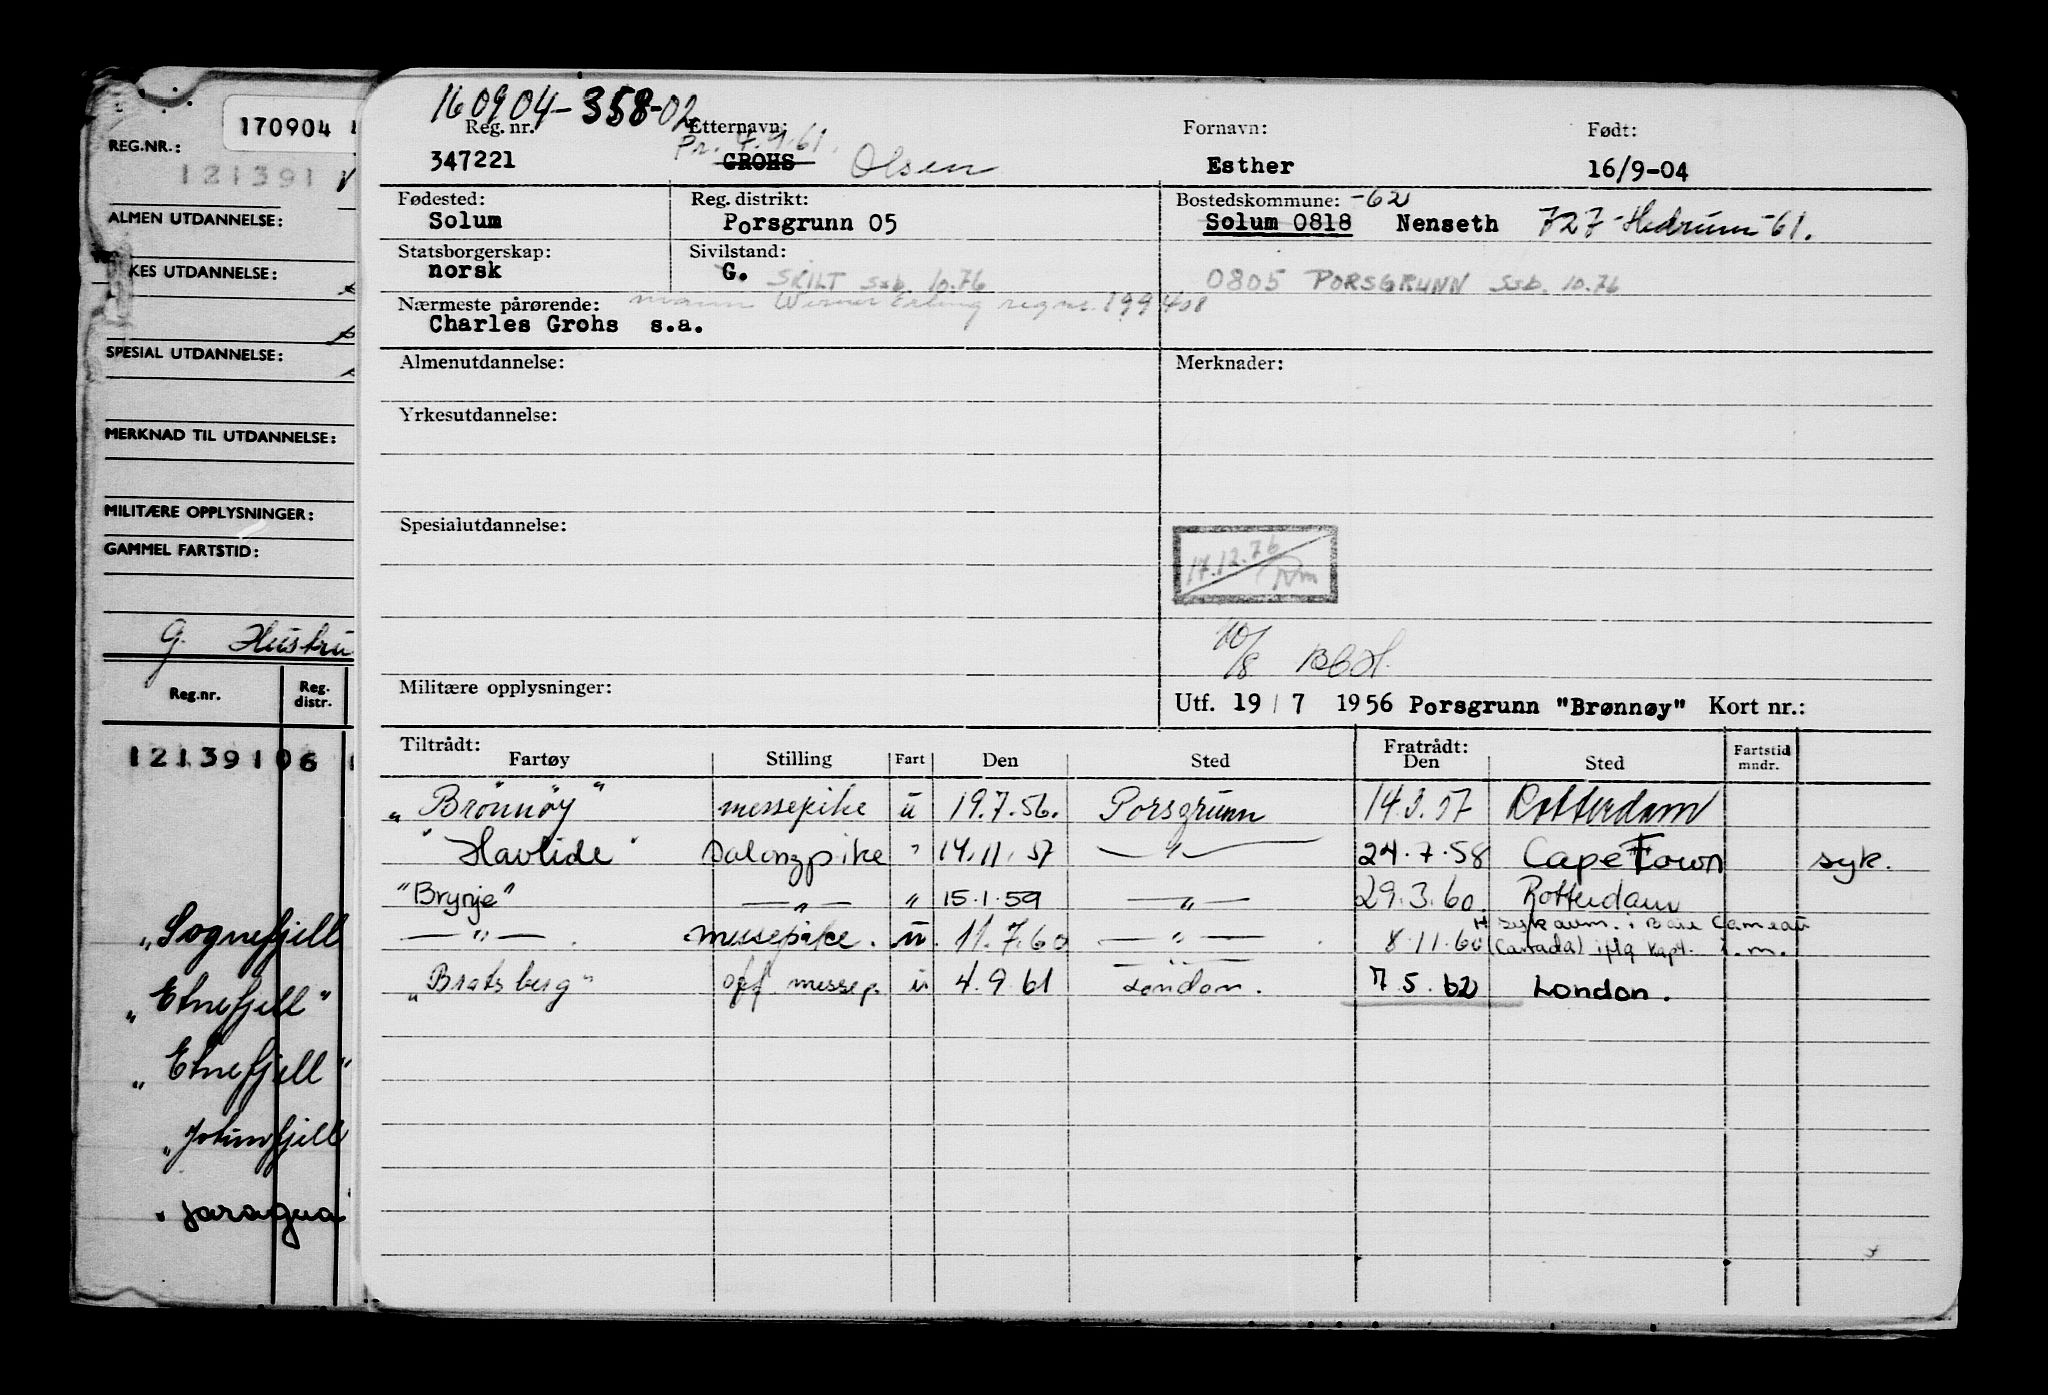 170904
REG.NR.:
121391
ALMEN UTDANNELSE:
KES UTDANNELSE:
SPESIAL UTDANNELSE:
MERKNAD TIL UTDANNELSE:
MILITÆRE OPPLYSNINGER:
GAMMEL FARTSTID:
G. Hustru
Reg.nr. Reg. distr.
121391 06
"Sognefjell
"Etnefjell"
"Etnefjell"
"Jotunfjell
" Jaragua
160904-358-02
Reg. nr. Etternavn: Fornavn: Født:
Pr. 4.9.61.
347221 GROHS Olsen Esther 16/9-04
Fødested: Reg. distrikt: Bostedskommune: -62
Solum Porsgrunn 05 Solum 0818 Nenseth 727-Hedrum-61.
Statsborgerskap: Sivilstand:
norsk G. SKILT Ssb. 10.76 0805 PORSGRUNN Ssb. 10.76
Nærmeste pårørende: mann Werner Erling regnr. 199408
Charles Grohs s.a.
Almenutdannelse: Merknader:
Yrkesutdannelse:
Spesialutdannelse:
17.12.76
10/8 BCH.
Militære opplysninger: Utf. 19 / 7 1956 Porsgrunn "Brønnøy" Kort nr.:
Tiltrådt: Fratrådt:
Fartøy Stilling Fart Den Sted Den Sted Fartstid mndr.
"Brönnöy" messepike u 19.7.56. Porsgrunn 14.3.57 Rotterdam
"Havlide" Salongpike " 14.11.57 —"— 24.7.58 Cape Town syk.
"Brynje" —"— " 15.1.59 —"— 29.3.60. Rotterdam
—"— . messepike. u. 11.7.60 —"— . 8.11.60 H sykeavm. i Baie Comeau (Canada) iflg kapt. i.m.
"Bratsberg" off. messep. u 4.9.61 London. 7.5.62 London.